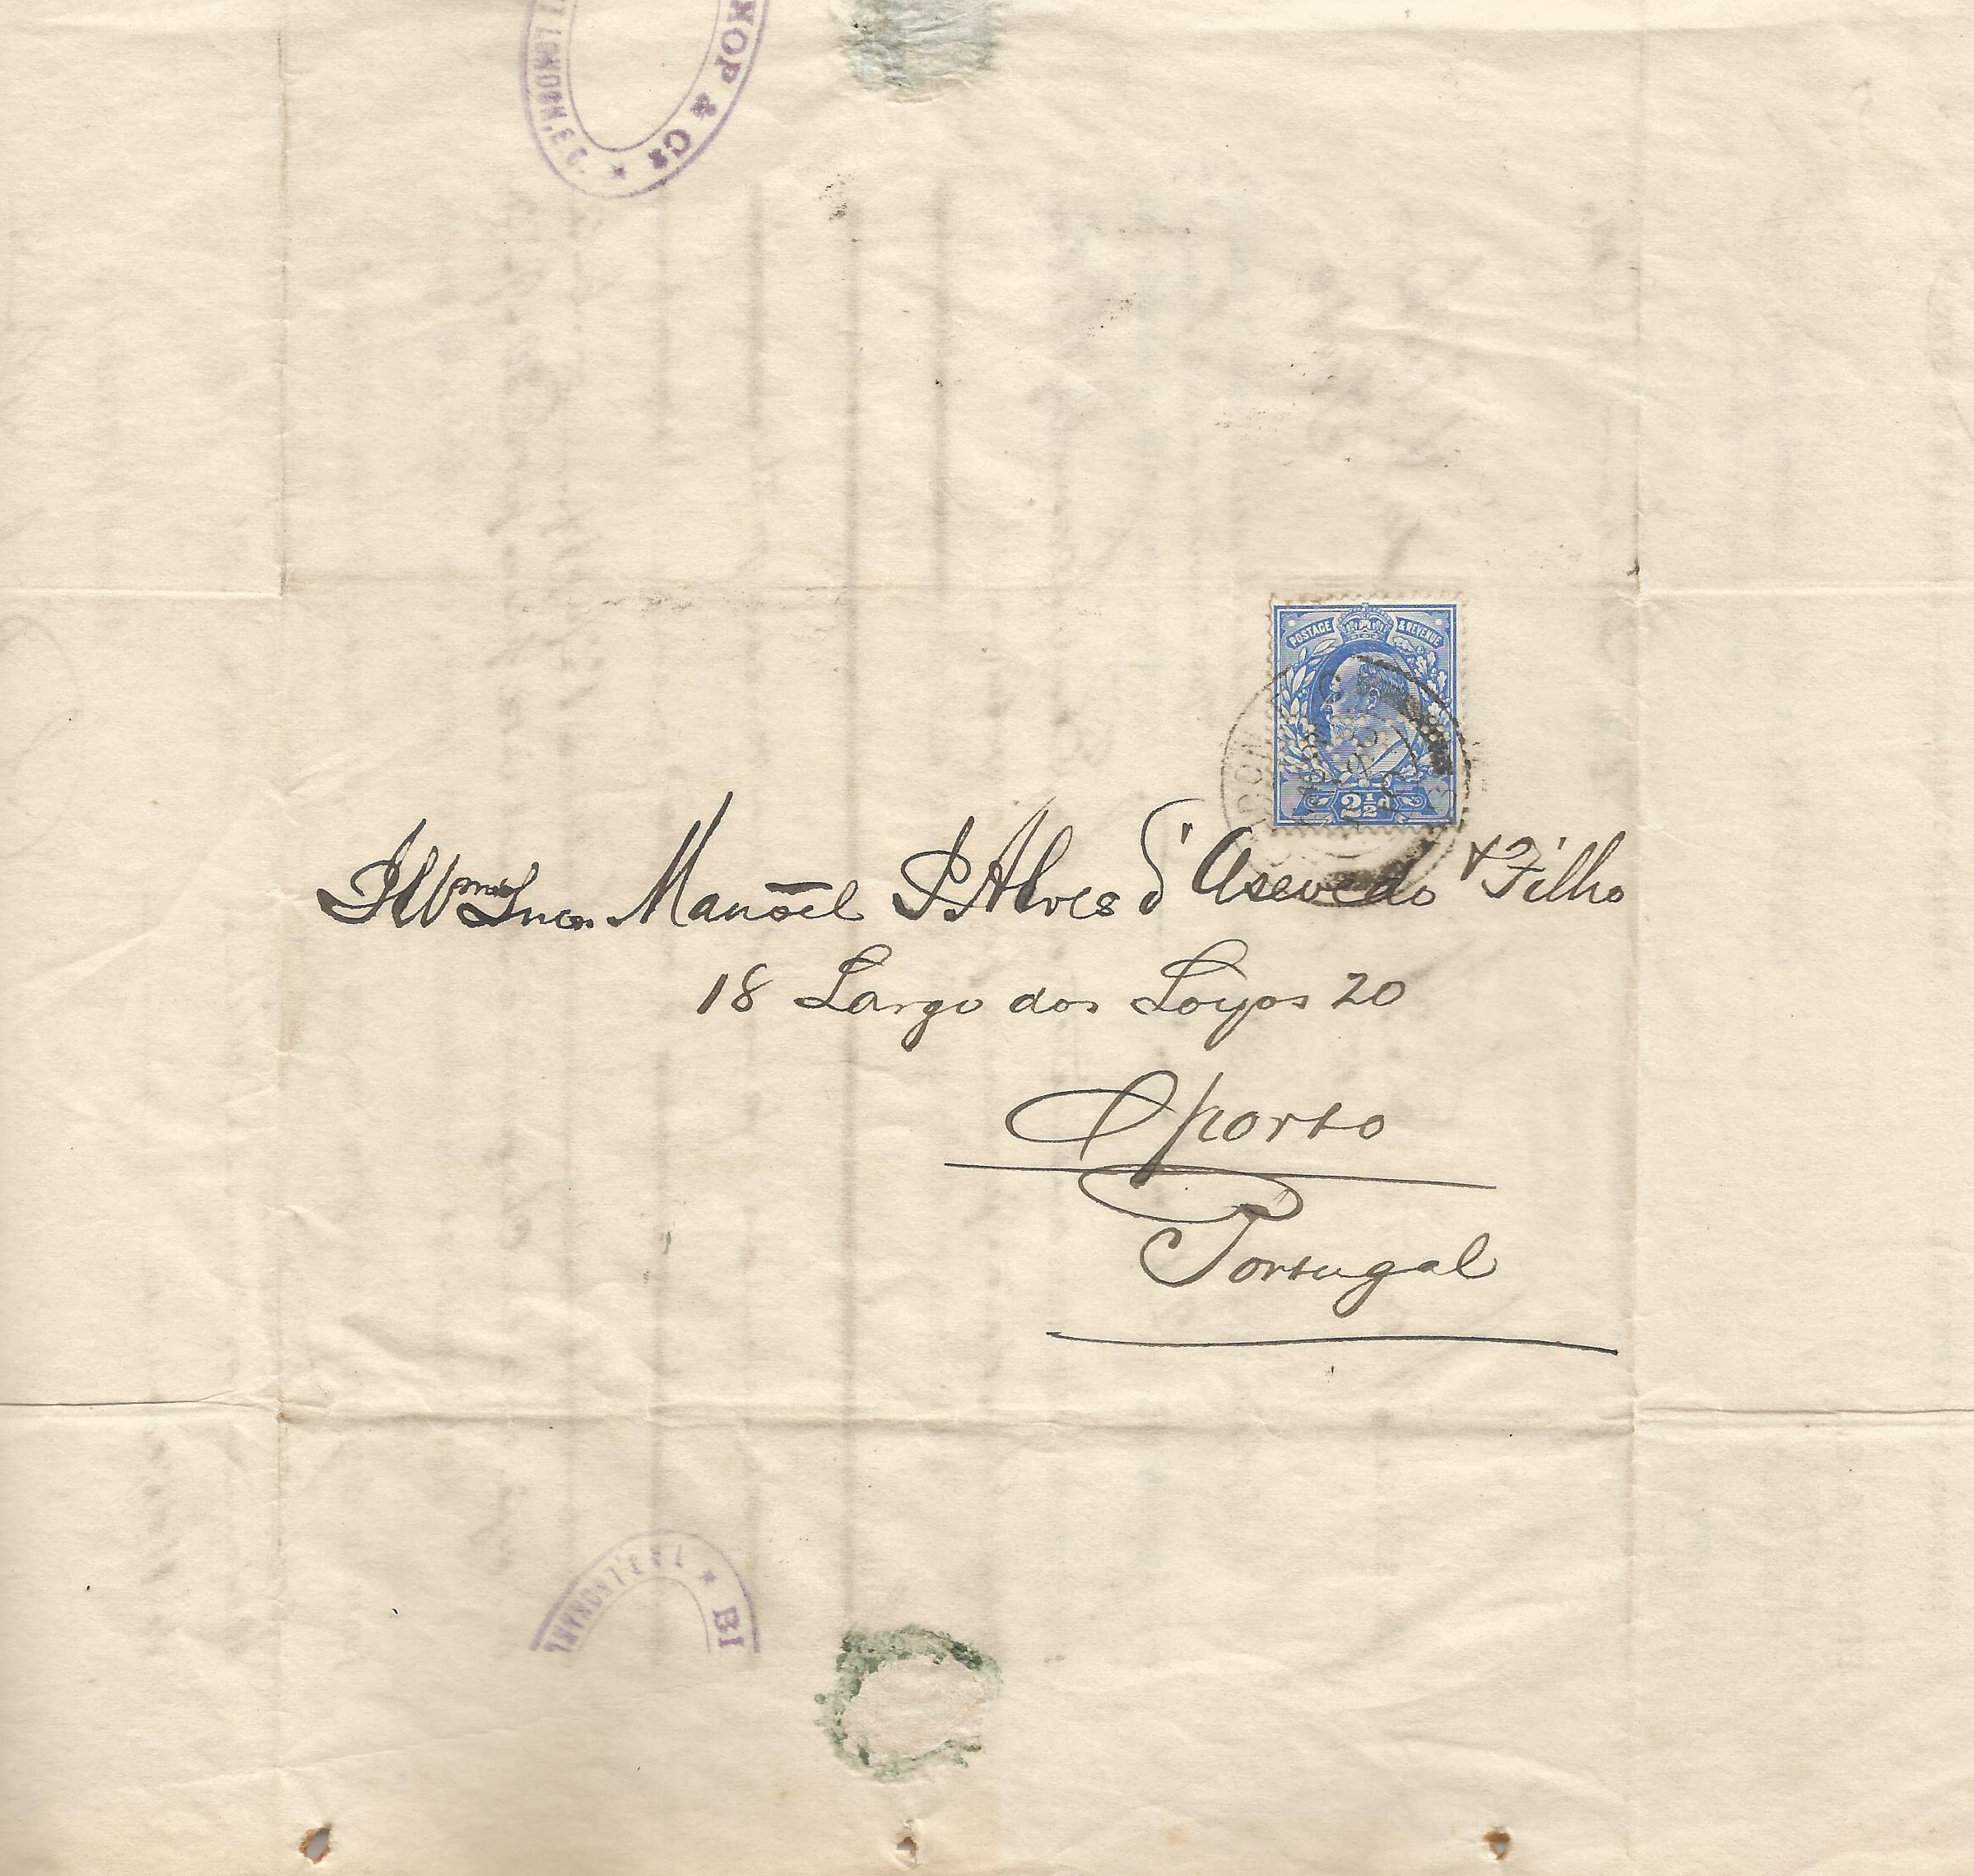 HOP & Co
LONDON, E.C.
POSTAGE & REVENUE
2½d
Illmos Snres. Manoel P. Alves d'Asevedo & Filho
18 Largo dos Loyos 20
Oporto
Portugal
BI